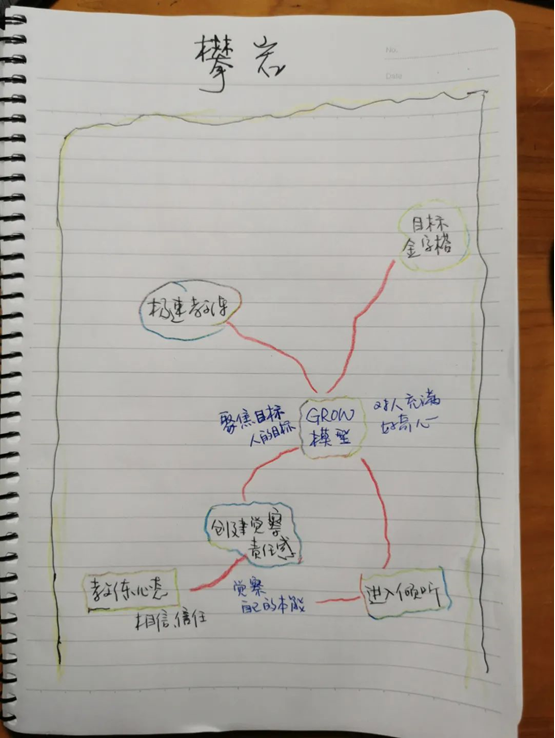 攀岩
No.
Date
目标
金字塔
极速教练
聚焦目标
人的目标
GROW
模型
对人充满
好奇心
创建觉察
责任感
教练心态
相信信任
觉察
自己的本能
进入倾听